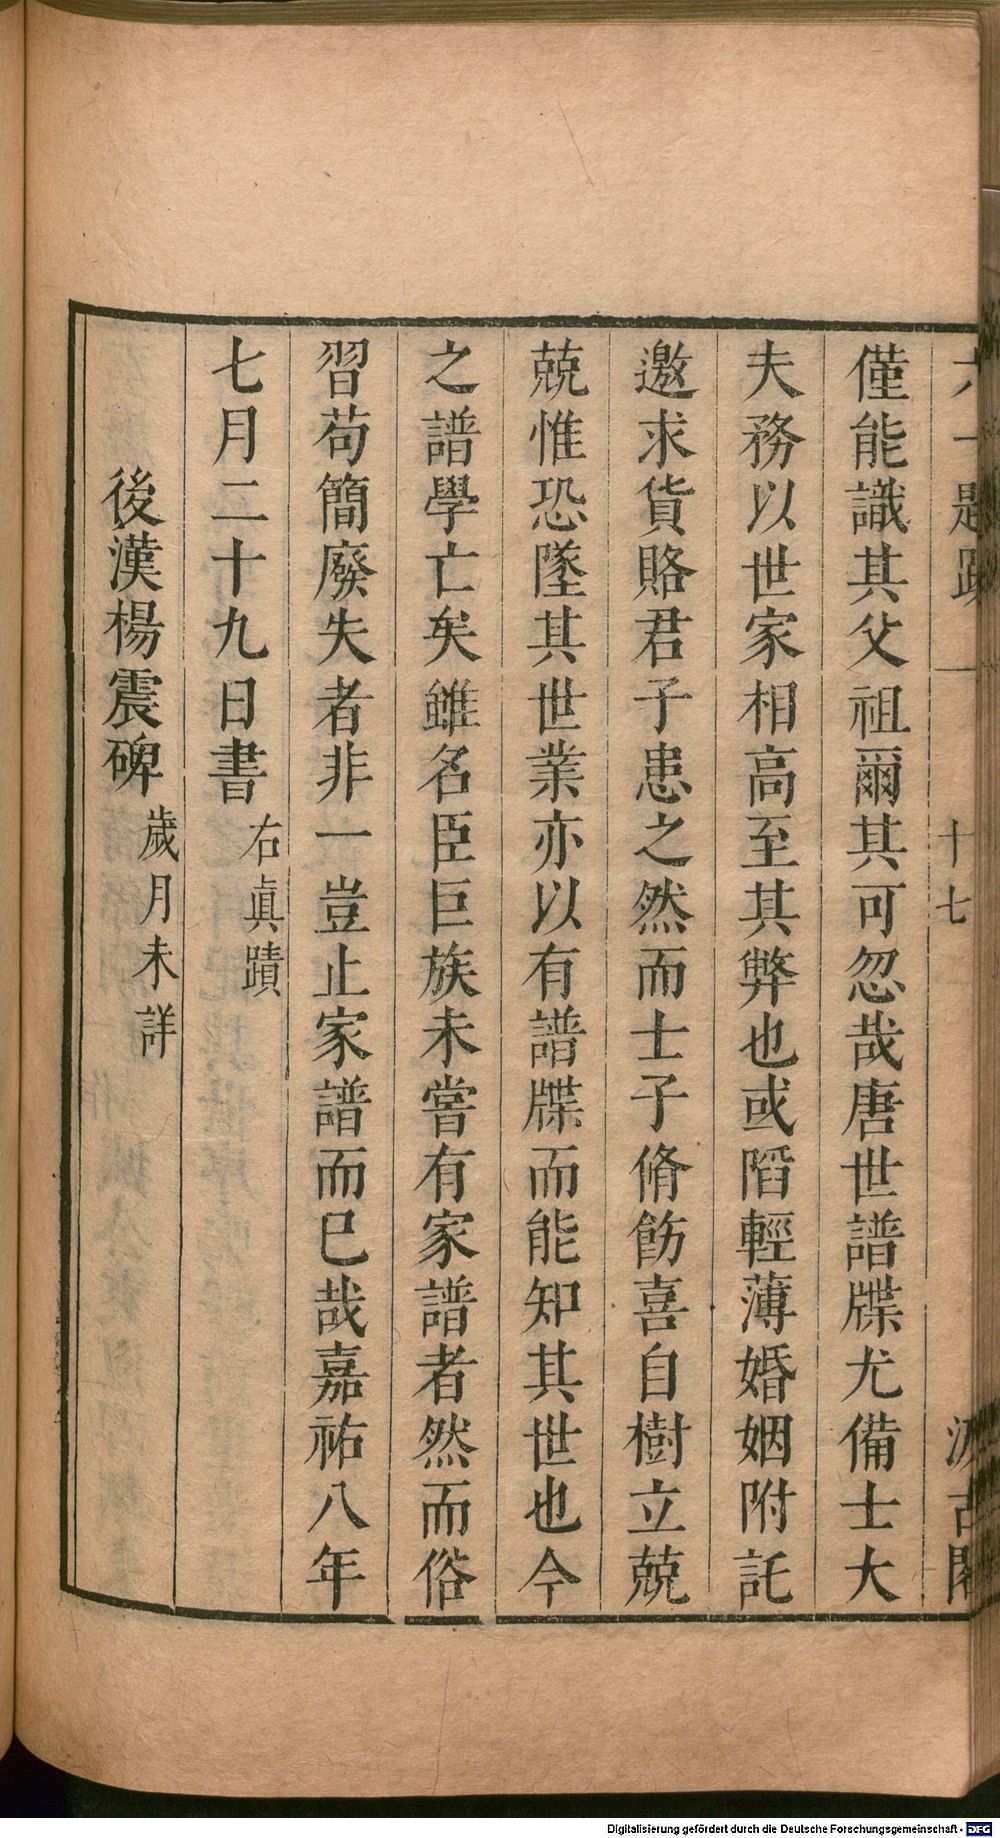 六一題跋 一 十七 汲古閣
僅能識其父祖爾其可忽哉唐世譜牒尤備士大
夫務以世家相高至其弊也或䧟輕薄婚姻附託
邀求貨賂君子患之然而士子脩飭喜自樹立兢
兢惟恐墜其世業亦以有譜牒而能知其世也今
之譜學亡矣雖名臣巨族未嘗有家譜者然而俗
習苟簡廢失者非一豈止家譜而已哉嘉祐八年
七月二十九日書 右眞蹟
後漢楊震碑 歲月未詳
Digitalisierung gefördert durch die Deutsche Forschungsgemeinschaft - DFG